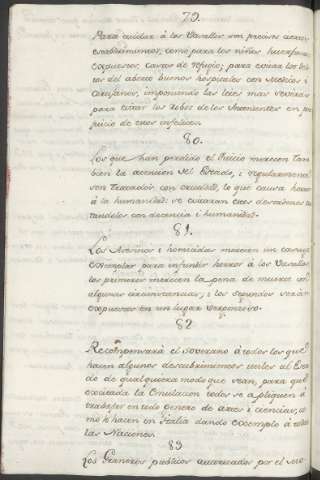 79.
Para cuidar á los Vasallos son precisos varios
establecimientos, como para los niños huerfanos
expuestos, casas de refugio; para evitar los
del aborto buenos hospitales con Medicos i
Cirujanos, imponiendo las leies mas severas
para evitar los robos de los Asentistas en per
juicio de esos infelices.
80.
Los que han perdido el Juicio merecen tam
bien la atencion del Estado, i regularmente
son tratados con crueldad, lo que causa horror
á la humanidad: se evitaran esos desordenes tra
tandolos con decencia i humanidad.
81.
Los Asesinos i homicidas merecen un castigo
exemplar para infundir horror á los Vasallos,
los primeros merecen la pena de muerte en
algunas circunstancias, i los segundos serán
expuestos en un lugar vergonzoso.
82.
Recompensará el Soverano á todos los que
hacen algunos descubrimientos utiles al Esta
do de qualquiera modo que sean, para que
excitada la Emulacion todos se apliquen á
trabajar en todo genero de artes i ciencias, co
mo se hacen en Italia dando exemplo á todas
las Naciones.
83
Los Graneros publicos autorizados por el Sove